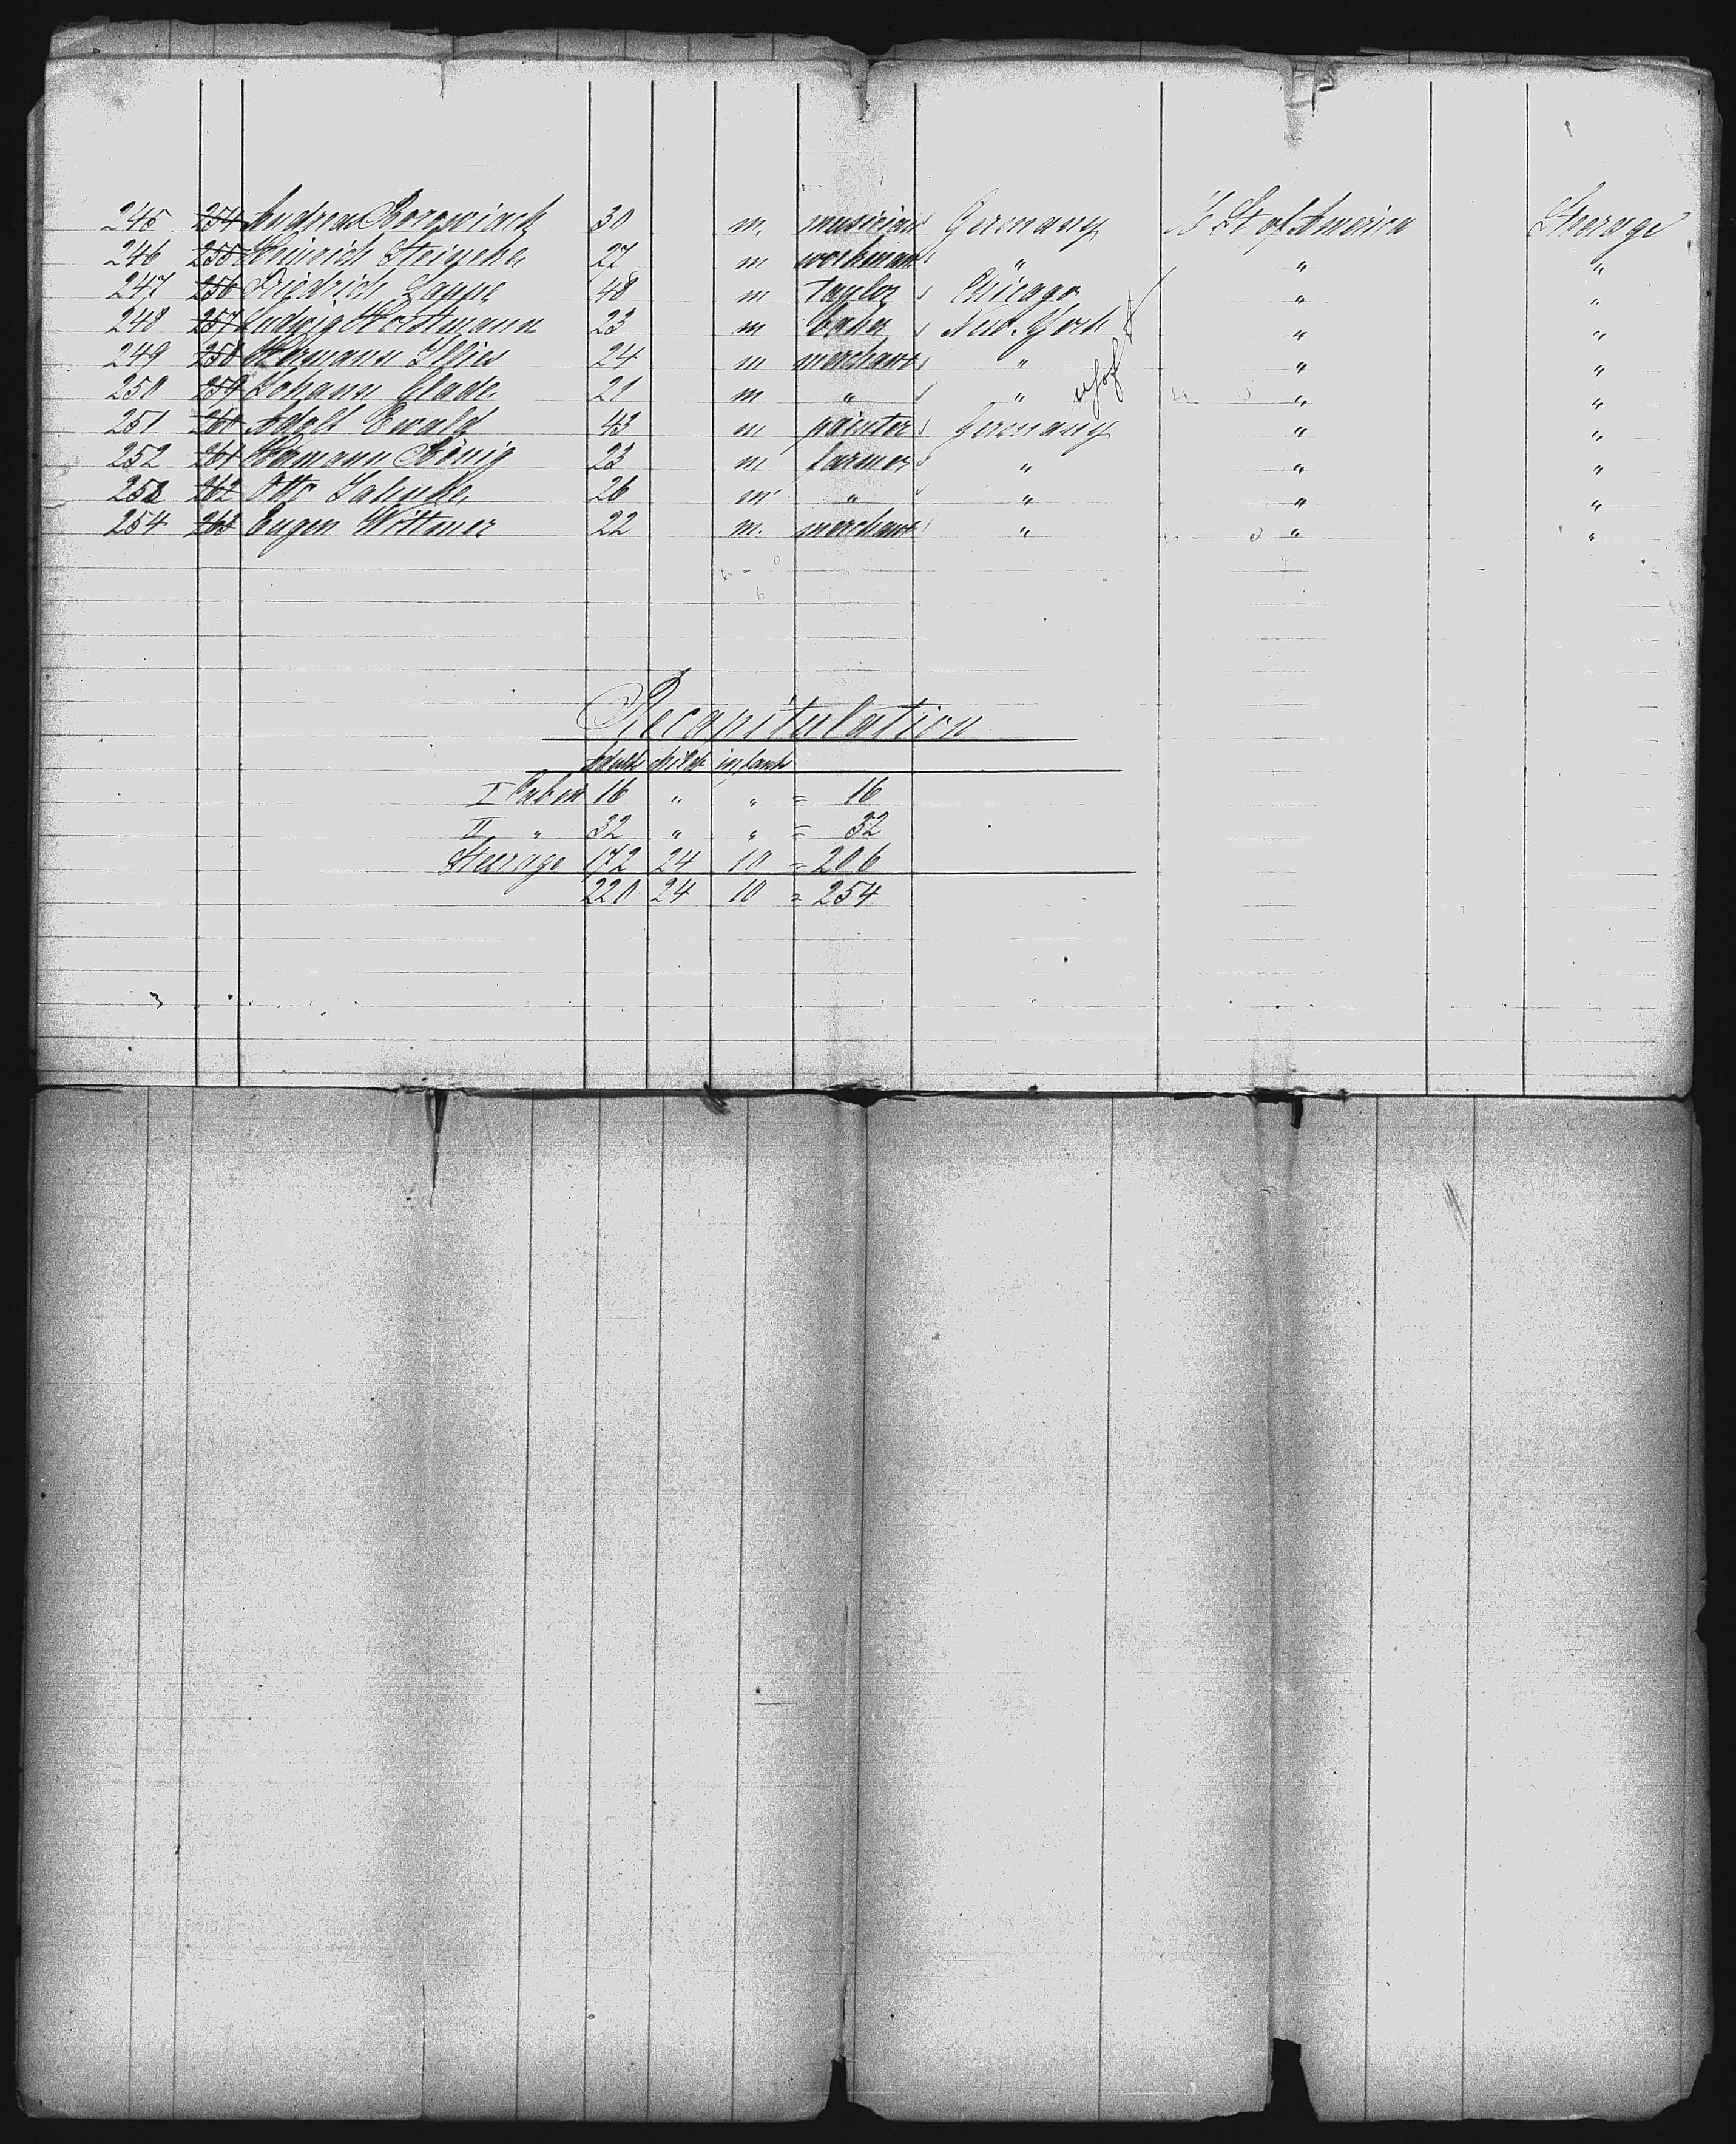 245 254 Andreas Borowiack 30 m. musician Germany U St of America Steerage
246 255 Heinrich Steincke 27 m workman " " "
247 256 Friedrich Lappe 48 m taylor Chicago " "
248 257 Ludwig Horstmann 23 m baker New-York " "
249 258 Hermann Illies 24 m merchant " " "
250 259 Johann Glade 21 m " " " "
251 260 Adolf Ewald 43 m painter Germany " "
252 261 Hermann König 23 m farmer " " "
253 262 Otto Jahncke 26 m " " " "
254 263 Eugen Wittmer 22 m. merchant " " "
Recapitulation
Adults childr infants
I Cabin 16 " " = 16
II " 32 " " = 32
Steerage 172 24 10 = 206
220 24 10 = 254